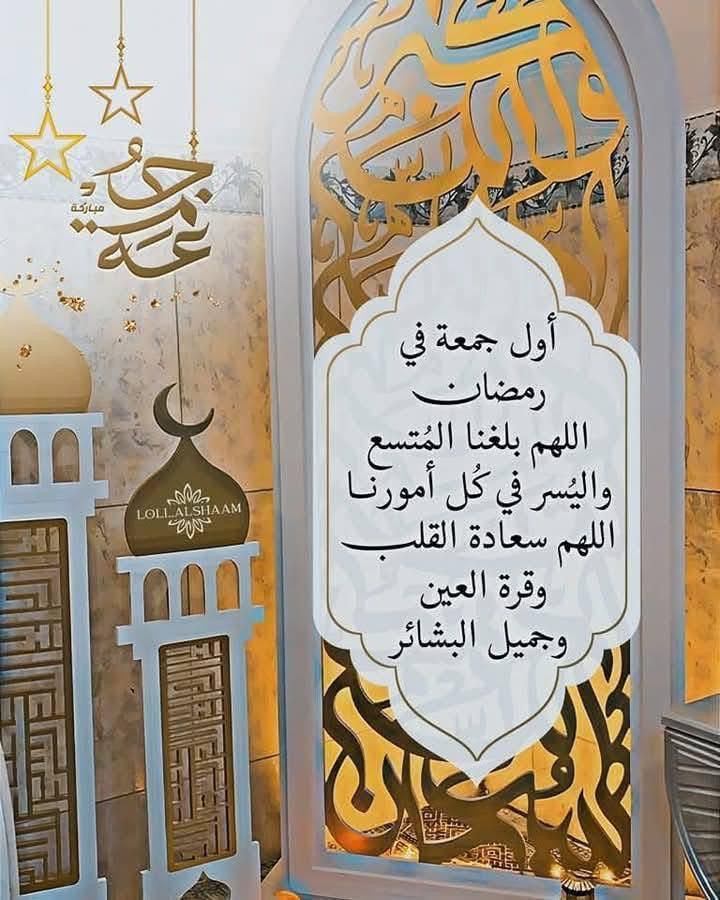 جمعة
مباركة
أول جمعة في
رمضان
اللهم بلغنا المُتسع
واليُسر في كُل أمورنا
اللهم سعادة القلب
وقرة العين
وجميل البشائر
LOLL.ALSHAAM